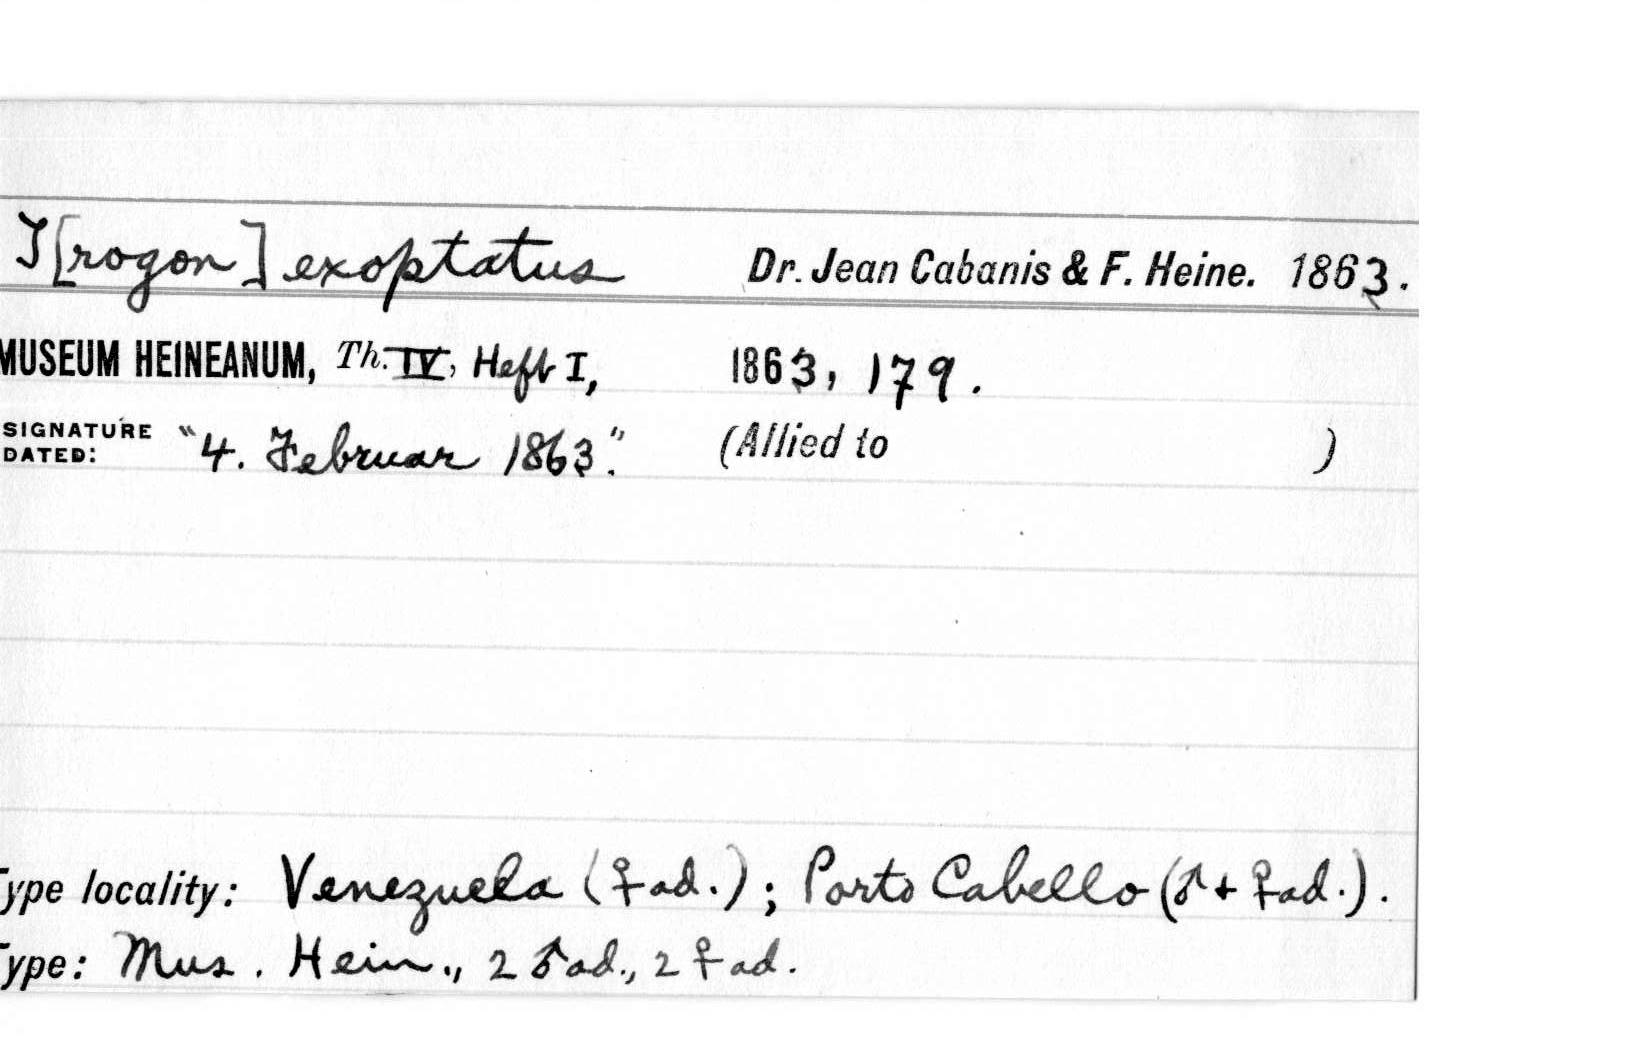 T[rogon] exoptatus Dr. Jean Cabanis & F. Heine. 1863.
MUSEUM HEINEANUM, Th. IV, Heft I, 1863, 179.
SIGNATURE DATED: "4. Februar 1863." (Allied to )
Type locality: Venezuela (♀ad.); Porto Cabello (♂ + ♀ad.).
Type: Mus. Hein., 2 ♂ad., 2 ♀ad.